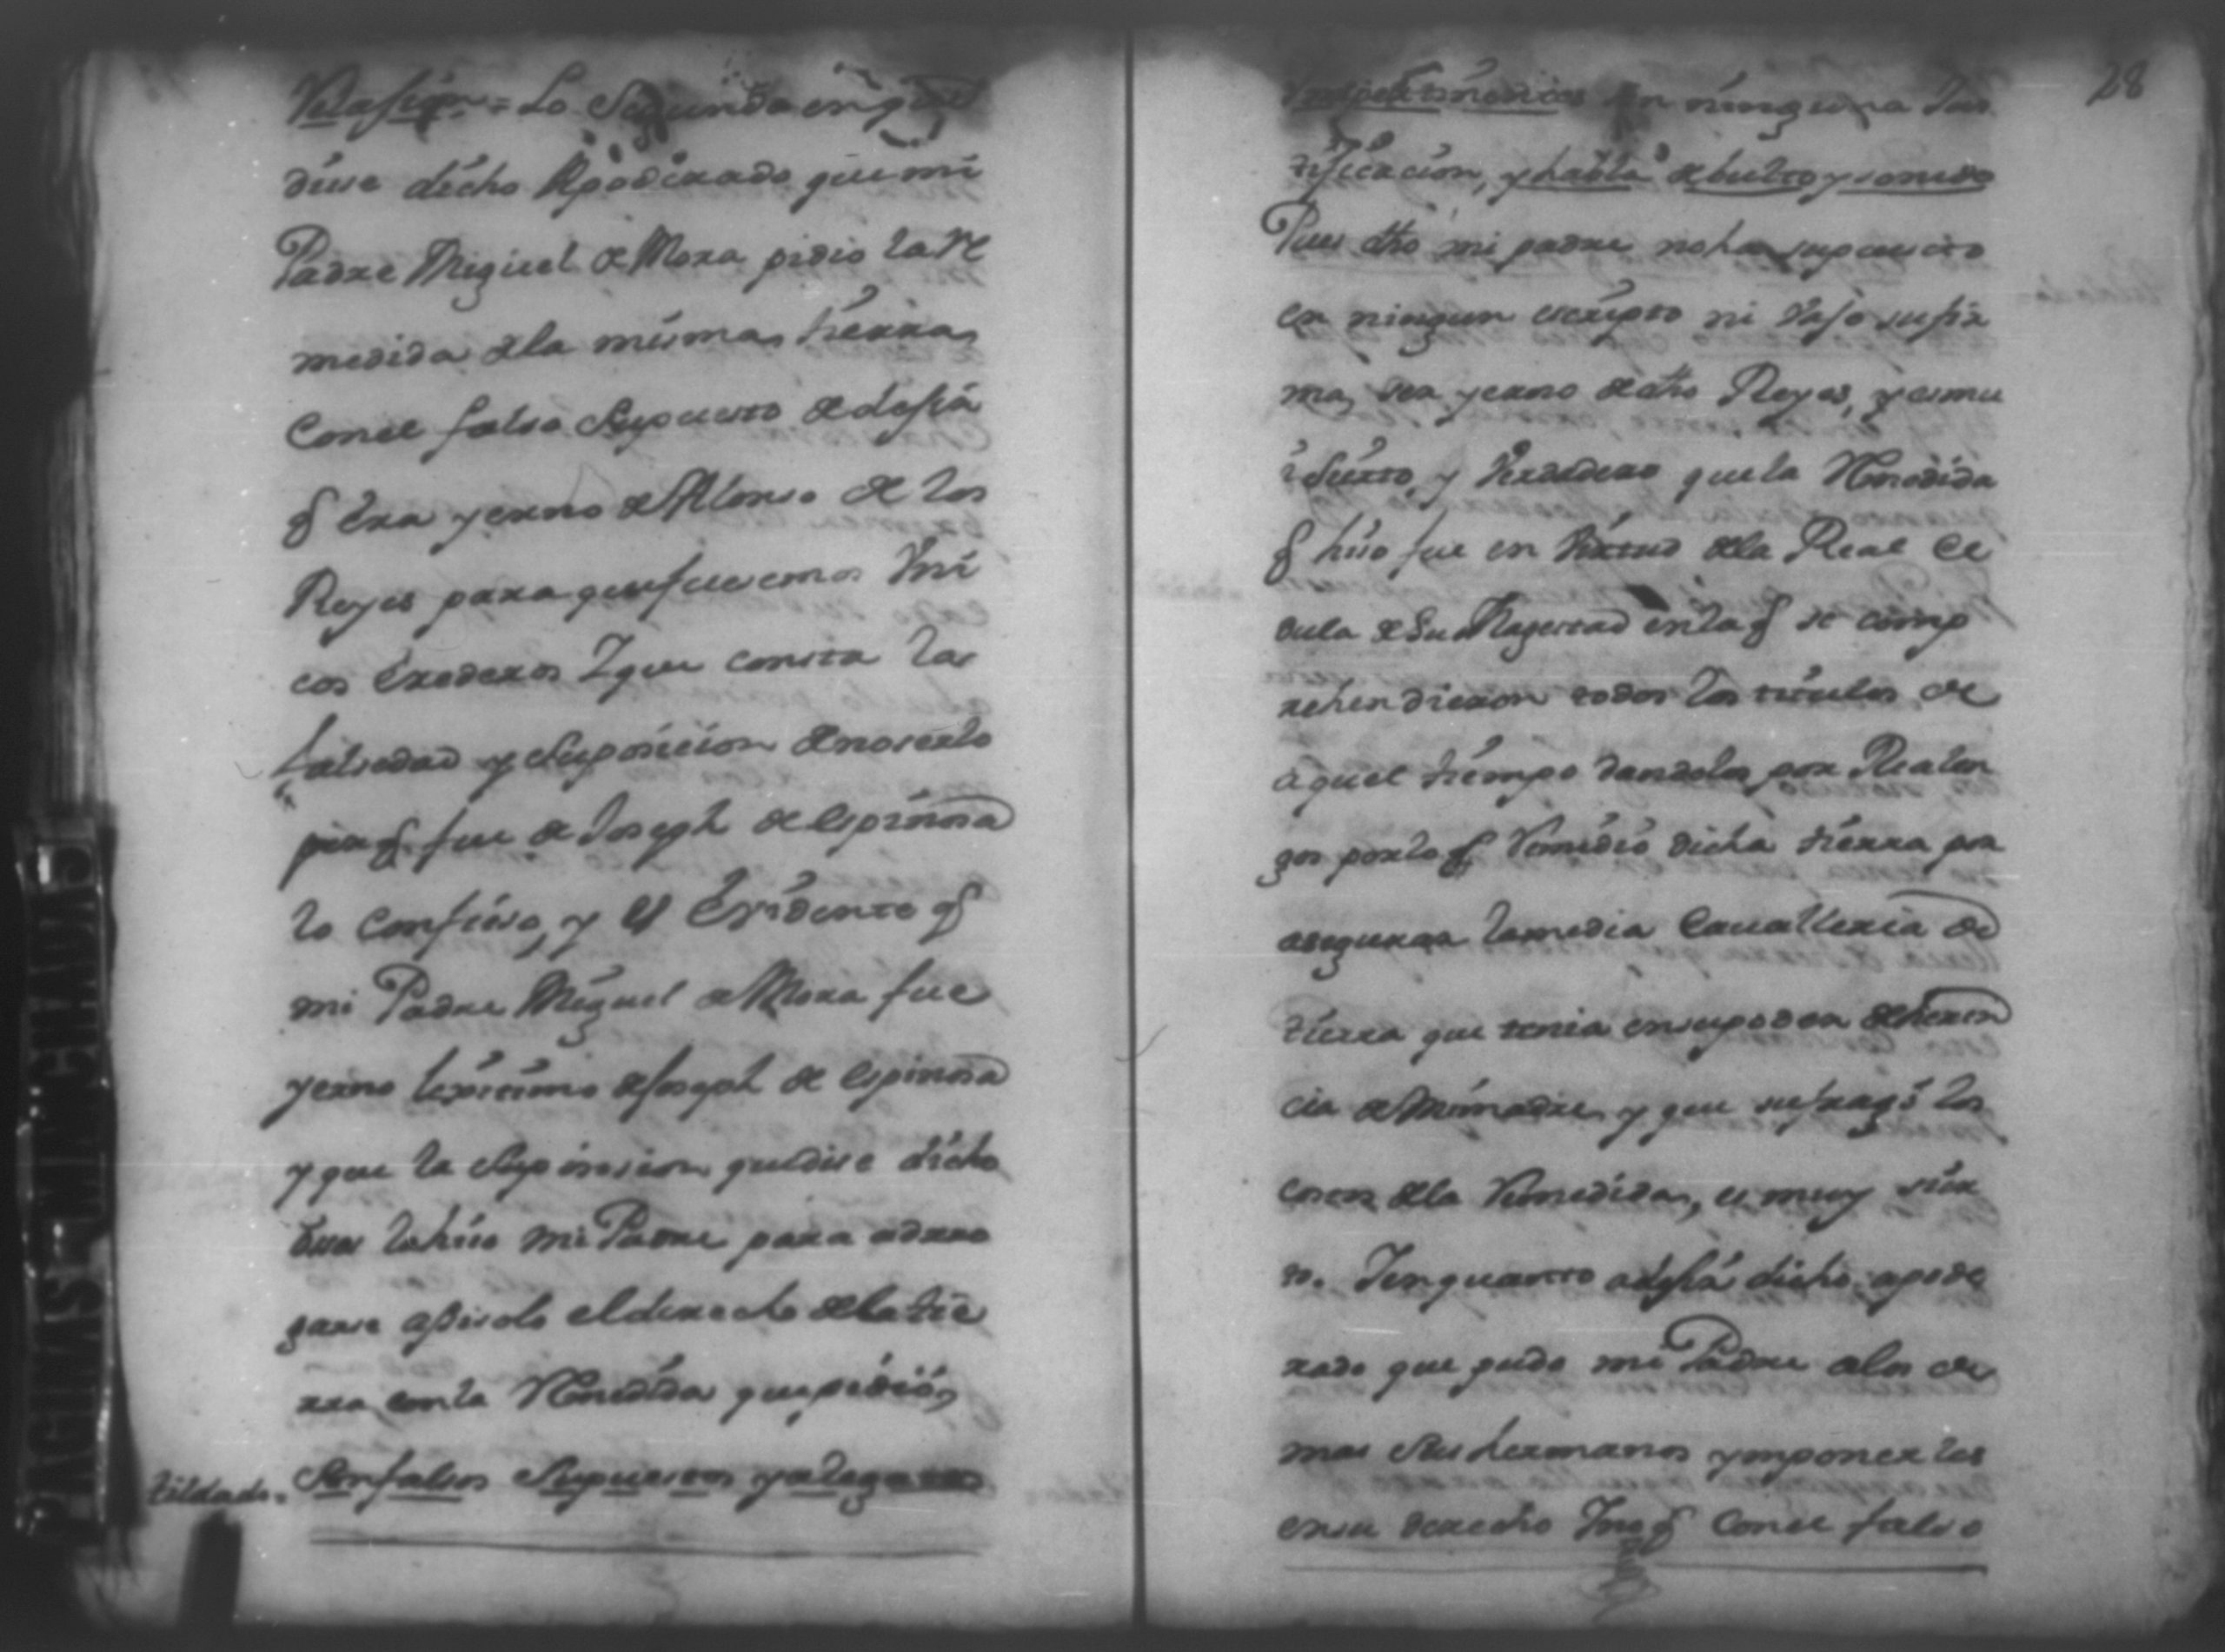 Relasion = Lo Segundo en que
dise dicho Apoderado que mi
Padre Miguel de Mora pidio la Re
medida de la mismas tierras
con el falso Supuesto de desir
q̃ era yerno de Alonso de los
Reyes para que fuesemos Vni
cos Erederos Y que consta la
falsedad y Suposicion de no serlo
pues q̃ fue de Joseph de Espinosa
lo confieso, y es Evidente q̃
mi Padre Miguel de Mora fue
yerno lexitimo de Joseph de Espinosa
y que la Suposision que dise dicho
la hiso mi Padre para adxro
garse asi solo el derecho de la tie
rra con la Remedida que pidió,
tildado. Son falsos Supuestos y alegatos
28
impertinencias sin ninguna Jus
tificacion, y habla de bulto y sonido
Pues dho mi padre no ha supuesto
en ningun escripto ni Vajo su fir
ma, ser yerno de dho Reyes, y es mu
i Sierto, y Verdadero que la Remedida
q̃ hiso fue en Virtud de la Real Ce
dula de Su Magestad en la q̃ se comp
rehendieron todos los titulos de
aquel tiempo dandolos por Realen
gos por lo q̃ Remidió dicha tierra por
asegurar la media Cavalleria de
tierra que tenia en su poder de heren
cia de mi madre y que sufragó los
costos de la Remedida, es muy sier
to. Y en quanto a desir dicho apode
rado que pudo mi Padre a los de
mas Sus hermanos ymponerles
en su derecho Y no q̃ con el falso